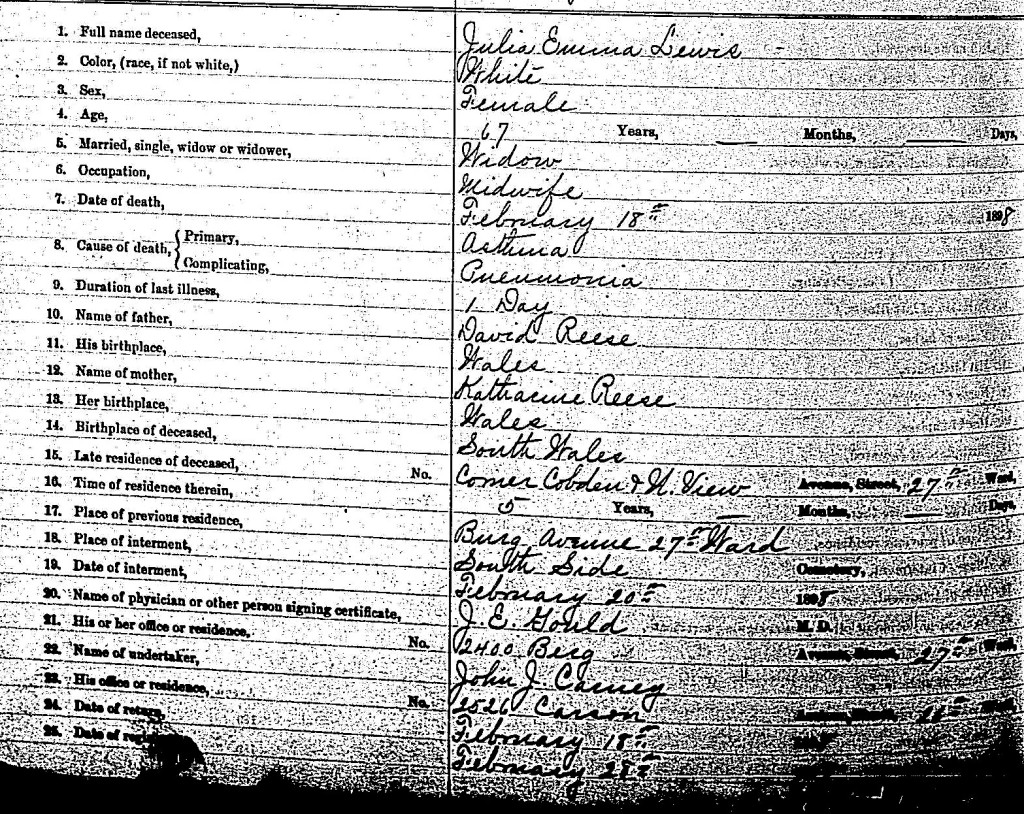 1. Full name deceased, Julia Emma Lewis
2. Color, (race, if not white,) White
3. Sex, Female
4. Age, 67 Years, — Months, — Days,
5. Married, single, widow or widower, Widow
6. Occupation, Midwife
7. Date of death, February 18th 1898
8. Cause of death, { Primary, Asthma
Complicating, Pneumonia
9. Duration of last illness, 1 Day
10. Name of father, David Reese
11. His birthplace, Wales
12. Name of mother, Katharine Reese
13. Her birthplace, Wales
14. Birthplace of deceased, South Wales
15. Late residence of deceased, No. Corner Cobden & N. View Avenue, Street, 27th Ward,
16. Time of residence therein, 5 Years, — Months, — Days,
17. Place of previous residence, Burg Avenue 27th Ward
18. Place of interment, South Side Cemetery,
19. Date of interment, February 20th 1898
20. Name of physician or other person signing certificate, J. E. Gould M. D.
21. His or her office or residence, No. 2400 Berg Avenue, Street, 27th Ward,
22. Name of undertaker, John J. Carney
23. His office or residence, No. 2526 Carson Avenue, Street, Ward,
24. Date of return, February 18th
25. Date of February